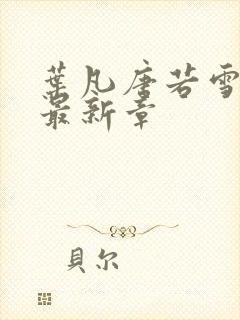 葉凡唐若雪
最新章
貝尔